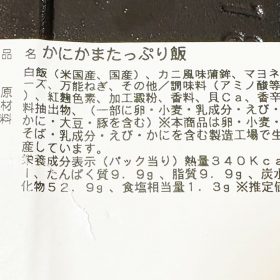 品名 かにかまたっぷり飯
白飯(米国産、国産)、カニ風味蒲鉾、マヨネ
ーズ、万能ねぎ、その他/調味料(アミノ酸等
)、紅麹色素、加工澱粉、香料、貝Ca、香辛
料抽出物、(一部に卵・小麦・乳成分・えび・
かに・大豆・豚を含む)※本商品は卵・小麦・
そば・乳成分・えび・かにを含む製造工場で生
産しています。
栄養成分表示(パック当り)熱量340Kca
l、たんぱく質9.9g、脂質9.9g、炭水
化物52.9g、食塩相当量1.3g※推定値
原材料